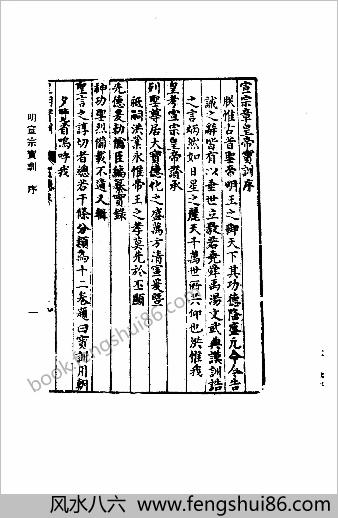 宣宗章皇帝寳訓序
朕惟古昔聖帝明王之御天下其功德隆盛凡
誡之辭皆有以垂世立教若堯舜禹湯文武典謨訓誥
之言炳然如日星之麗天千萬世所共仰也洪惟我
皇考宣宗皇帝嗣承
列聖尊居大寳德化之盛萬方清寧爰暨
祗嗣洪業永惟帝王之孝莫先於丕顯
先德爰勑儒臣編纂實録
神功聖烈備載不遺又輯
聖言之諄切者總若干條分類為十二卷題曰寳訓用朝
夕
嗚呼我
明宣宗寳訓 序
一
book.fengshui86.com
风水八六 www.fengshui86.com